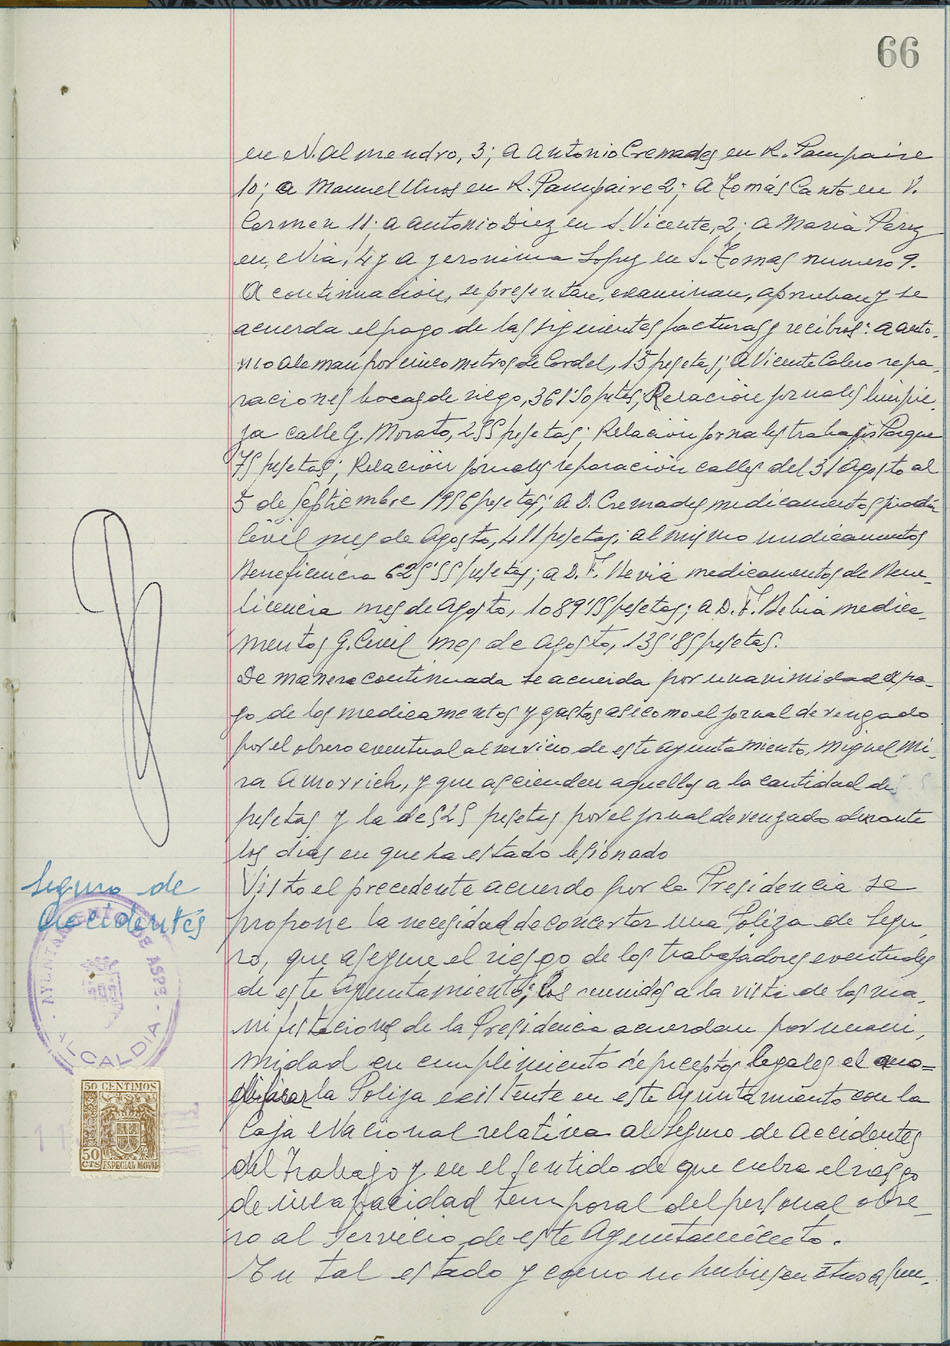 66
en N. Almendro, 3; a Antonio Cremades en R. Pampaire
10; a Manuel en R. Pampaire 2; a Tomás Canto en V.
Carmen 11; a Antonio Diez en S. Vicente, 2; a Maria Perez
en, e Via, 4 y a Jeronima Lopez en S. Tomas numero 9.
A continuacion, se presentan, examinan, aprueban y se
acuerda el pago de las siguientes facturas y recibos: a Anto-
nio Aleman por cinco metros de Cordel, 15 pesetas; a Vicente Calero repa-
raciones bocas de riego, 361'50 ptas; Relación jornales limpie-
za calle G. Morato, 255 pesetas; Relacion jornales trabajos Parque
75 pesetas; Relación jornales reparación calles del 31 Agosto al
5 de Septiembre 1956 pesetas; a D. Cremades medicamentos
Civil mes de Agosto, 411 pesetas; al mismo medicamentos
Beneficencia 625'55 pesetas; a D. F. Nevia medicamentos de Bene-
ficencia mes de Agosto, 1089'15 pesetas; a D. F. Nebia medica-
mentos G. Civil mes de Agosto, 135'85 pesetas.
De manera continuada se acuerda por unanimidad el pa-
go de los medicamentos y gastos asi como el jornal devengado
por el obrero eventual al servicio de este Ayuntamiento, Miguel Mi-
ra Amorrich, y que ascienden aquellos a la cantidad de
pesetas y la de 525 pesetas por el jornal devengado durante
los dias en que ha estado lesionado
Seguro de
Accidentes
Visto el precedente acuerdo por la Presidencia se
propone la necesidad de concertar una Poliza de Segu-
ro, que asegure el riesgo de los trabajadores eventuales
de este Ayuntamiento; los reunidos a la vista de las ma-
nifestaciones de la Presidencia acuerdan por unani-
midad en cumplimiento de preceptos legales el mo-
dificar la Poliza existente en este Ayuntamiento con la
Caja Nacional relativa al Seguro de Accidentes
del Trabajo y en el sentido de que cubra el riesgo
de incapacidad temporal del personal obre-
ro al Servicio de este Ayuntamiento.
En tal estado y como no hubiesen otros asun-
AYUNTAMIENTO DE ASPE
ALCALDIA
50 CENTIMOS
50
CTS
ESPECIAL MOVIL